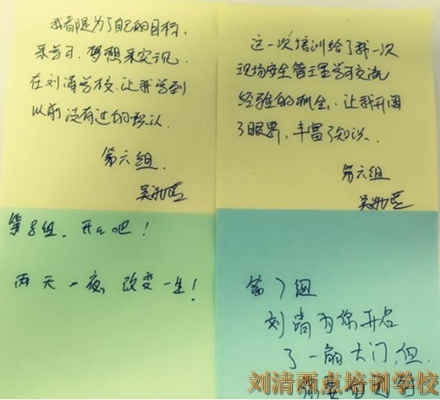 我都是为了自己的目标、
来学习，梦想来实现．
在刘清学校，让我学到
以前没有过的认
第六组．
吴
这一次培训给了我一次
现场安全管理学习交流
经验的机会．让我开阔
了眼界、丰富了知识．
第六组
吴
第8组，开心吧！
两天一夜，改变一生！
第7组
刘清为你开启
了一扇大门，但
你要自己
刘清两点培训学校